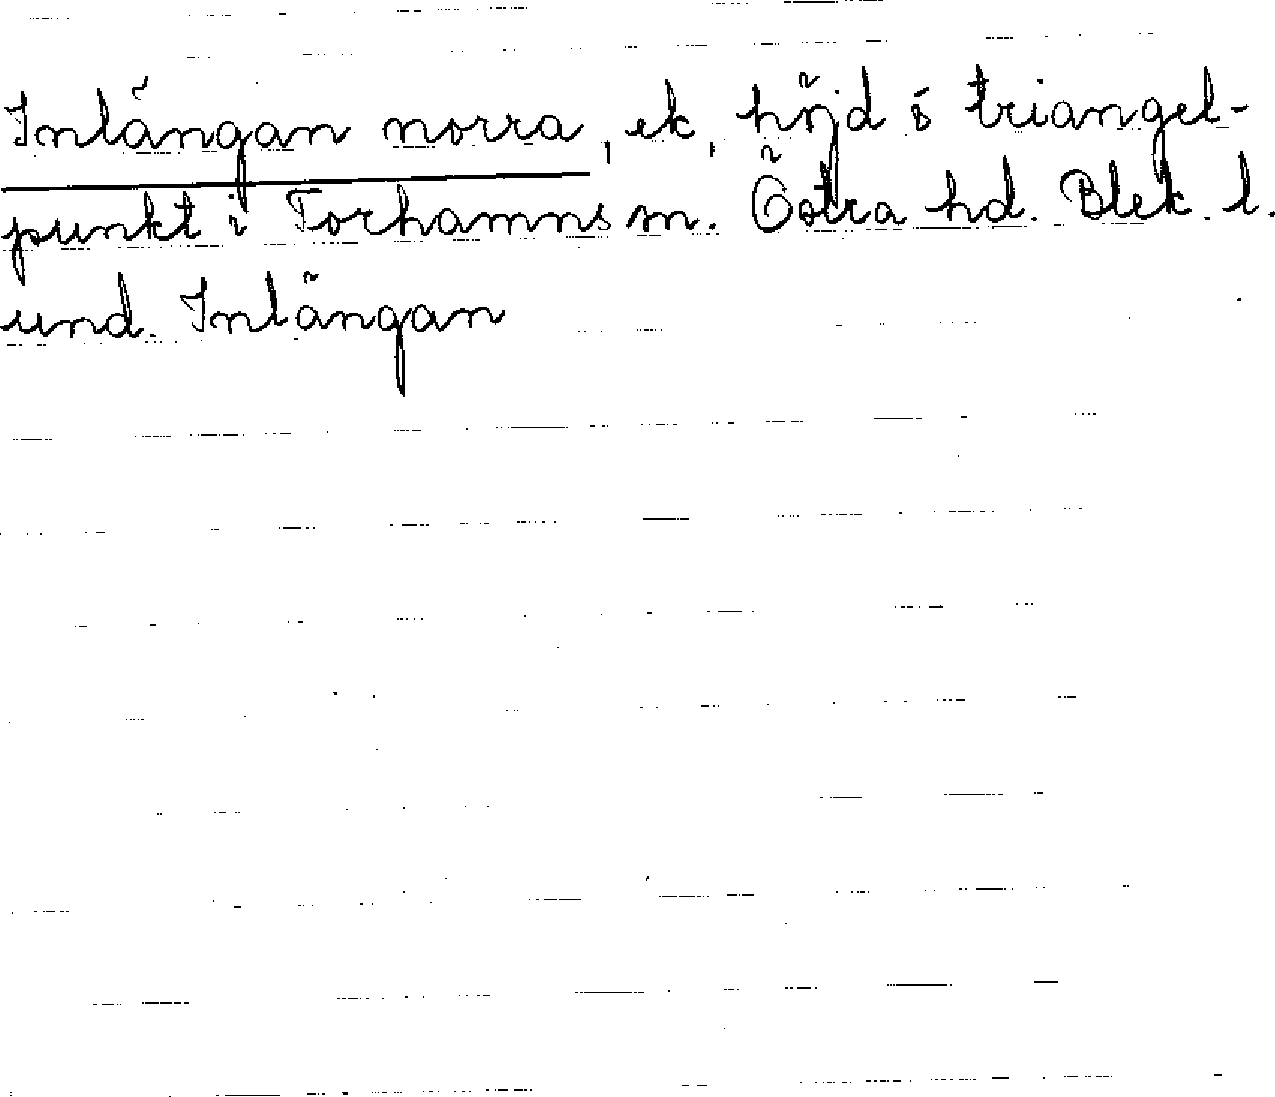 Inlängan norra, ek, höjd triangel-
punkt i Torhamns sn. Östra hd. Blek. l.
und. Inlängan